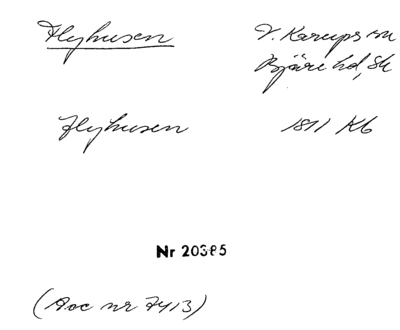 Flyhusen
V. Karups sn
Bjäre hd, Sk
Flyhusen
1811 Kb
Nr 20385
(Acc nr 7413)